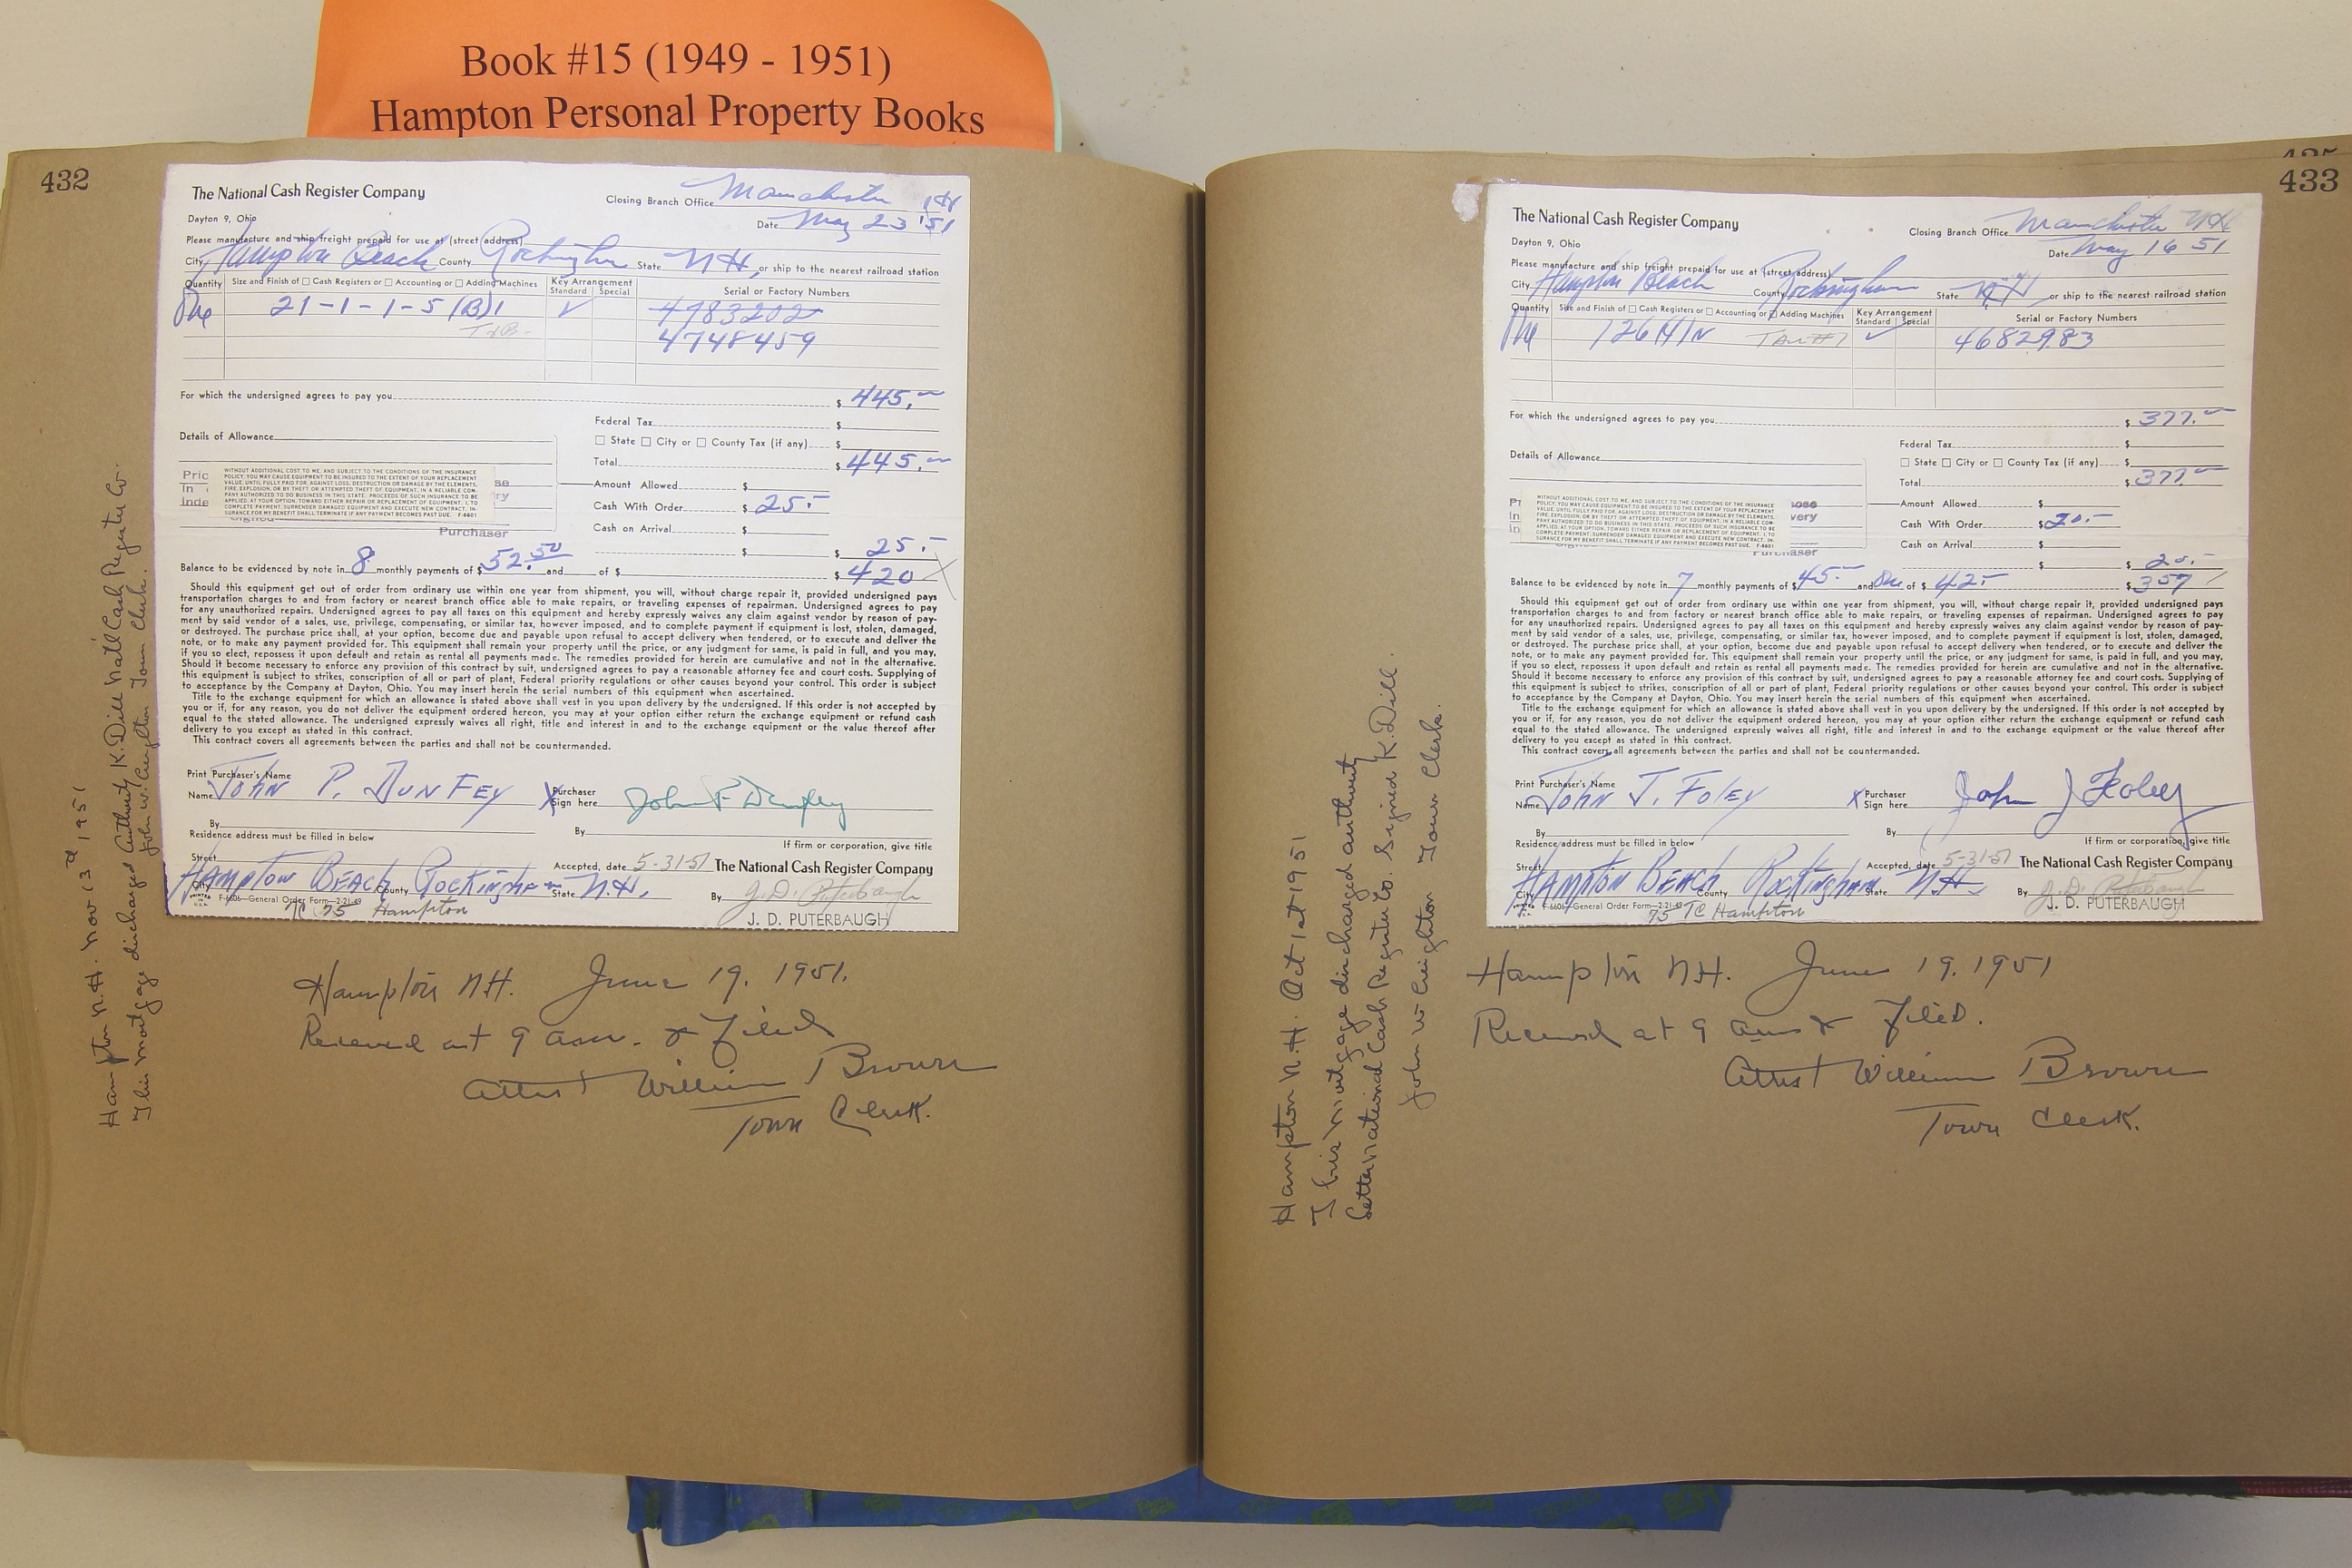 Book #15 (1949 - 1951)
Hampton Personal Property Books
432
The National Cash Register Company
Dayton 9, Ohio
Closing Branch Office Manchester NH
Date May 23 '51
Please manufacture and ship freight prepaid for use at (street address)
City Hampton Beach County Rockingham State NH, or ship to the nearest railroad station
Quantity Size and Finish of Cash Registers or Accounting or Adding Machines Key Arrangement Standard Special Serial or Factory Numbers
One 21-1-1-5 (B)1 ✓ 4783202
4748459
For which the undersigned agrees to pay you $ 445.—
Federal Tax $
Details of Allowance State City or County Tax (if any) $
Total $ 445.—
WITHOUT ADDITIONAL COST TO ME, AND SUBJECT TO THE CONDITIONS OF THE INSURANCE
POLICY, YOU MAY CAUSE EQUIPMENT TO BE INSURED TO THE EXTENT OF YOUR REPLACEMENT
VALUE, UNTIL FULLY PAID FOR, AGAINST LOSS, DESTRUCTION OR DAMAGE BY THE ELEMENTS,
FIRE, EXPLOSION, OR BY THEFT OR ATTEMPTED THEFT OF EQUIPMENT, IN A RELIABLE COM-
PANY AUTHORIZED TO DO BUSINESS IN THIS STATE. PROCEEDS OF SUCH INSURANCE TO BE
APPLIED, AT YOUR OPTION, TOWARD EITHER REPAIR OR REPLACEMENT OF EQUIPMENT. I, TO
COMPLETE PAYMENT, SURRENDER DAMAGED EQUIPMENT AND EXECUTE NEW CONTRACT. IN-
SURANCE FOR MY BENEFIT SHALL TERMINATE IF ANY PAYMENT BECOMES PAST DUE. F-6601
Purchaser
Amount Allowed $
Cash With Order $ 25.—
Cash on Arrival $
$ $ 25.—
Balance to be evidenced by note in 8 monthly payments of $ 52.50 and of $ $ 420
Should this equipment get out of order from ordinary use within one year from shipment, you will, without charge repair it, provided undersigned pays
transportation charges to and from factory or nearest branch office able to make repairs, or traveling expenses of repairman. Undersigned agrees to pay
for any unauthorized repairs. Undersigned agrees to pay all taxes on this equipment and hereby expressly waives any claim against vendor by reason of pay-
ment by said vendor of a sales, use, privilege, compensating, or similar tax, however imposed, and to complete payment if equipment is lost, stolen, damaged,
or destroyed. The purchase price shall, at your option, become due and payable upon refusal to accept delivery when tendered, or to execute and deliver the
note, or to make any payment provided for. This equipment shall remain your property until the price, or any judgment for same, is paid in full, and you may,
if you so elect, repossess it upon default and retain as rental all payments made. The remedies provided for herein are cumulative and not in the alternative.
Should it become necessary to enforce any provision of this contract by suit, undersigned agrees to pay a reasonable attorney fee and court costs. Supplying of
this equipment is subject to strikes, conscription of all or part of plant, Federal priority regulations or other causes beyond your control. This order is subject
to acceptance by the Company at Dayton, Ohio. You may insert herein the serial numbers of this equipment when ascertained.
Title to the exchange equipment for which an allowance is stated above shall vest in you upon delivery by the undersigned. If this order is not accepted by
you or if, for any reason, you do not deliver the equipment ordered hereon, you may at your option either return the exchange equipment or refund cash
equal to the stated allowance. The undersigned expressly waives all right, title and interest in and to the exchange equipment or the value thereof after
delivery to you except as stated in this contract.
This contract covers all agreements between the parties and shall not be countermanded.
Print Purchaser's Name
Name John P. Dunfey X Purchaser Sign here John P Dunfey
By By
Residence address must be filled in below If firm or corporation, give title
Street Accepted, date 5-31-51 The National Cash Register Company
City Hampton Beach County Rockingham State N.H. By J.D. Puterbaugh
F-6606—General Order Form—2-21-49
TC 75 Hampton J. D. PUTERBAUGH
Hampton N.H. June 19, 1951.
Received at 9 am. & Filed
Attest William Brown
Town Clerk.
Hampton N.H. Nov 13th 1951
This mortgage discharged Authority K. Dill Nat'l Cash Register Co.
John W. Creighton Town Clerk.
433
The National Cash Register Company
Dayton 9, Ohio
Closing Branch Office Manchester NH
Date May 16 51
Please manufacture and ship freight prepaid for use at (street address)
City Hampton Beach County Rockingham State NH or ship to the nearest railroad station
Quantity Size and Finish of Cash Registers or Accounting or Adding Machines Key Arrangement Standard Special Serial or Factory Numbers
One 126 HIN ✓ 4682983
For which the undersigned agrees to pay you $ 377.—
Federal Tax $
Details of Allowance State City or County Tax (if any) $
Total $ 377.—
WITHOUT ADDITIONAL COST TO ME, AND SUBJECT TO THE CONDITIONS OF THE INSURANCE
POLICY, YOU MAY CAUSE EQUIPMENT TO BE INSURED TO THE EXTENT OF YOUR REPLACEMENT
VALUE, UNTIL FULLY PAID FOR, AGAINST LOSS, DESTRUCTION OR DAMAGE BY THE ELEMENTS,
FIRE, EXPLOSION, OR BY THEFT OR ATTEMPTED THEFT OF EQUIPMENT, IN A RELIABLE COM-
PANY AUTHORIZED TO DO BUSINESS IN THIS STATE. PROCEEDS OF SUCH INSURANCE TO BE
APPLIED, AT YOUR OPTION, TOWARD EITHER REPAIR OR REPLACEMENT OF EQUIPMENT. I, TO
COMPLETE PAYMENT, SURRENDER DAMAGED EQUIPMENT AND EXECUTE NEW CONTRACT. IN-
SURANCE FOR MY BENEFIT SHALL TERMINATE IF ANY PAYMENT BECOMES PAST DUE. F-6601
Purchaser
Amount Allowed $
Cash With Order $ 20.—
Cash on Arrival $
$ $ 20.—
Balance to be evidenced by note in 7 monthly payments of $ 45.— and One of $ 42.— $ 357
Should this equipment get out of order from ordinary use within one year from shipment, you will, without charge repair it, provided undersigned pays
transportation charges to and from factory or nearest branch office able to make repairs, or traveling expenses of repairman. Undersigned agrees to pay
for any unauthorized repairs. Undersigned agrees to pay all taxes on this equipment and hereby expressly waives any claim against vendor by reason of pay-
ment by said vendor of a sales, use, privilege, compensating, or similar tax, however imposed, and to complete payment if equipment is lost, stolen, damaged,
or destroyed. The purchase price shall, at your option, become due and payable upon refusal to accept delivery when tendered, or to execute and deliver the
note, or to make any payment provided for. This equipment shall remain your property until the price, or any judgment for same, is paid in full, and you may,
if you so elect, repossess it upon default and retain as rental all payments made. The remedies provided for herein are cumulative and not in the alternative.
Should it become necessary to enforce any provision of this contract by suit, undersigned agrees to pay a reasonable attorney fee and court costs. Supplying of
this equipment is subject to strikes, conscription of all or part of plant, Federal priority regulations or other causes beyond your control. This order is subject
to acceptance by the Company at Dayton, Ohio. You may insert herein the serial numbers of this equipment when ascertained.
Title to the exchange equipment for which an allowance is stated above shall vest in you upon delivery by the undersigned. If this order is not accepted by
you or if, for any reason, you do not deliver the equipment ordered hereon, you may at your option either return the exchange equipment or refund cash
equal to the stated allowance. The undersigned expressly waives all right, title and interest in and to the exchange equipment or the value thereof after
delivery to you except as stated in this contract.
This contract covers all agreements between the parties and shall not be countermanded.
Print Purchaser's Name
Name John J. Foley X Purchaser Sign here John J Foley
By By
Residence address must be filled in below If firm or corporation, give title
Street Accepted, date 5-31-51 The National Cash Register Company
City Hampton Beach County Rockingham State N.H. By J.D. Puterbaugh
F-6606—General Order Form—2-21-49
75 TC Hampton J. D. PUTERBAUGH
Hampton N.H. June 19. 1951
Received at 9 am & Filed.
Attest William Brown
Town Clerk.
Hampton N.H. Oct 1st 1951
This mortgage discharged authority
letter National Cash Register Co. Signed K. Dill.
John W Creighton Town Clerk.